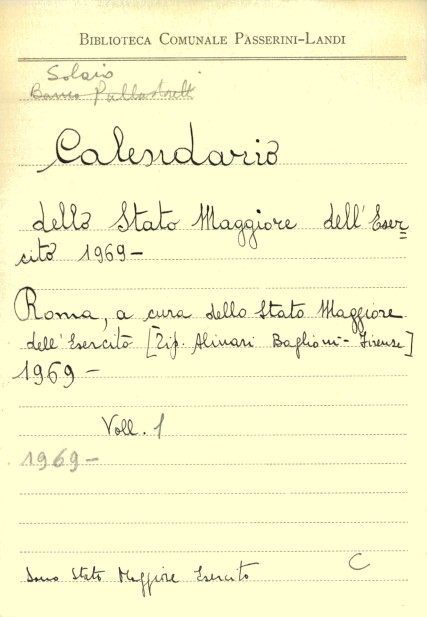 BIBLIOTECA COMUNALE PASSERINI-LANDI
Solaio
Banco Pallastrelli
Calendario
dello Stato Maggiore dell'Eser=
cito 1969-
Roma, a cura dello Stato Maggiore
dell'Esercito [Tip. Alinari Baglioni - Firenze]
1969-
Voll. 1
1969-
Dono Stato Maggiore Esercito
C